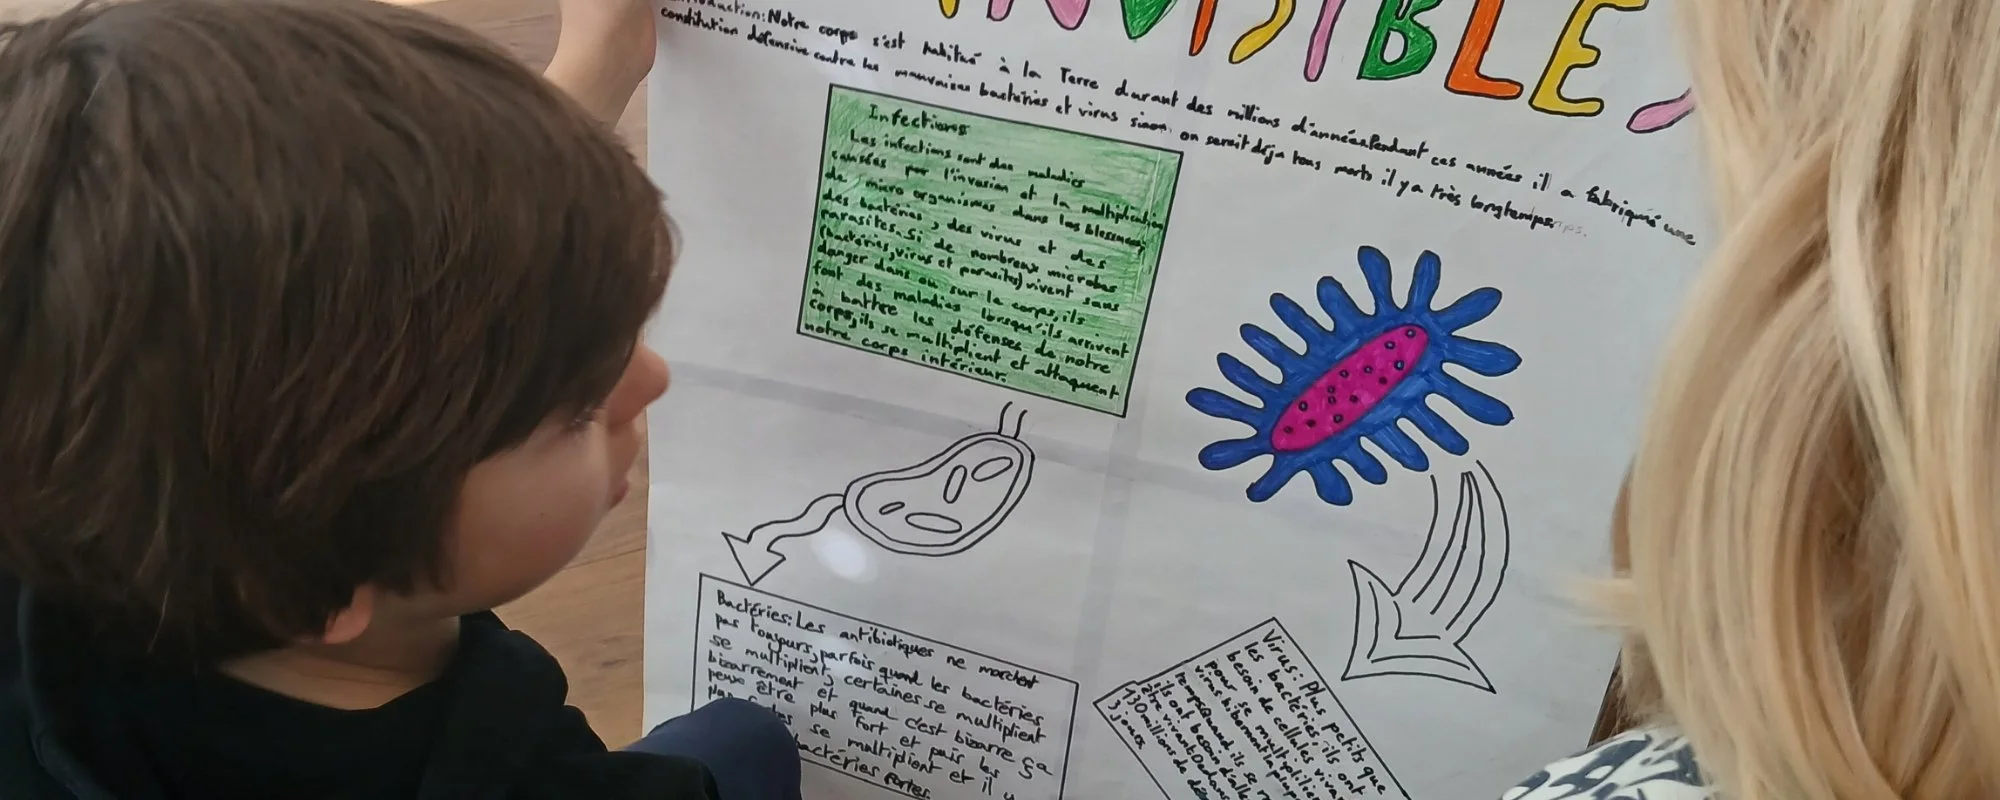 INVISIBLES
Notre corps s'est habitué à la Terre durant des millions d'années. Pendant ces années il a fabriqué une
constitution défensive contre les mauvaises bactéries et virus sinon, on serait déja tous morts il y a très longtemps.
Infections
Les infections sont des maladies
causées par l'invasion et la multiplication
de micro organismes dans les blessures,
des bactéries, des virus et des
parasites. Si de nombreux microbes
(bactéries, virus et parasites) vivent sans
danger dans ou sur le corps, ils
font des maladies lorsqu'ils arrivent
à battre les défenses de notre
corps, ils se multiplient et attaquent
notre corps intérieur.
Bactéries: Les antibiotiques ne marchent
pas toujours, parfois quand les bactéries
se multiplient, certaines se multiplient
bizarrement et quand c'est bizarre ça
peux être plus fort et puis les
plus se multiplient et il
bactéries fortes.
Virus: Plus petits que
les bactéries ils ont
besoin de cellules
pour se multiplier
virus
temps quand ils se
ils ont besoin
être vivant. Dedans
130 millions de
3 jours.